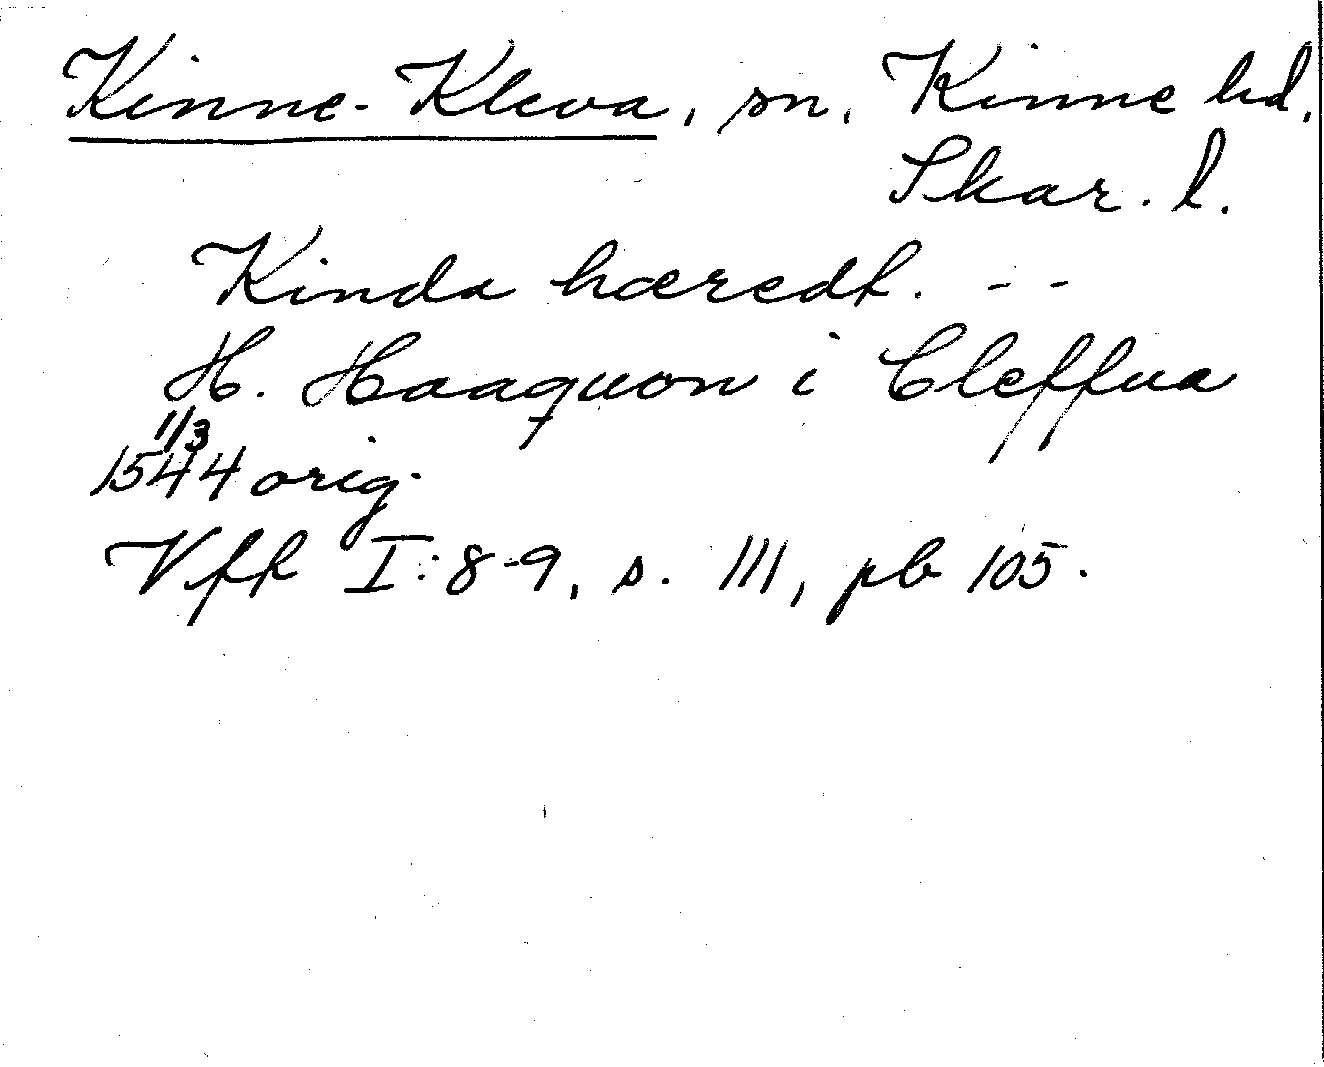 Kinne-Kleva, sn, Kinne hd.
Skar. l.
Kinda hæredt. - -
H. Haaquon i Cleffua
11/3
1544 orig.
Vfft I:8-9, s. 111, pb 105.